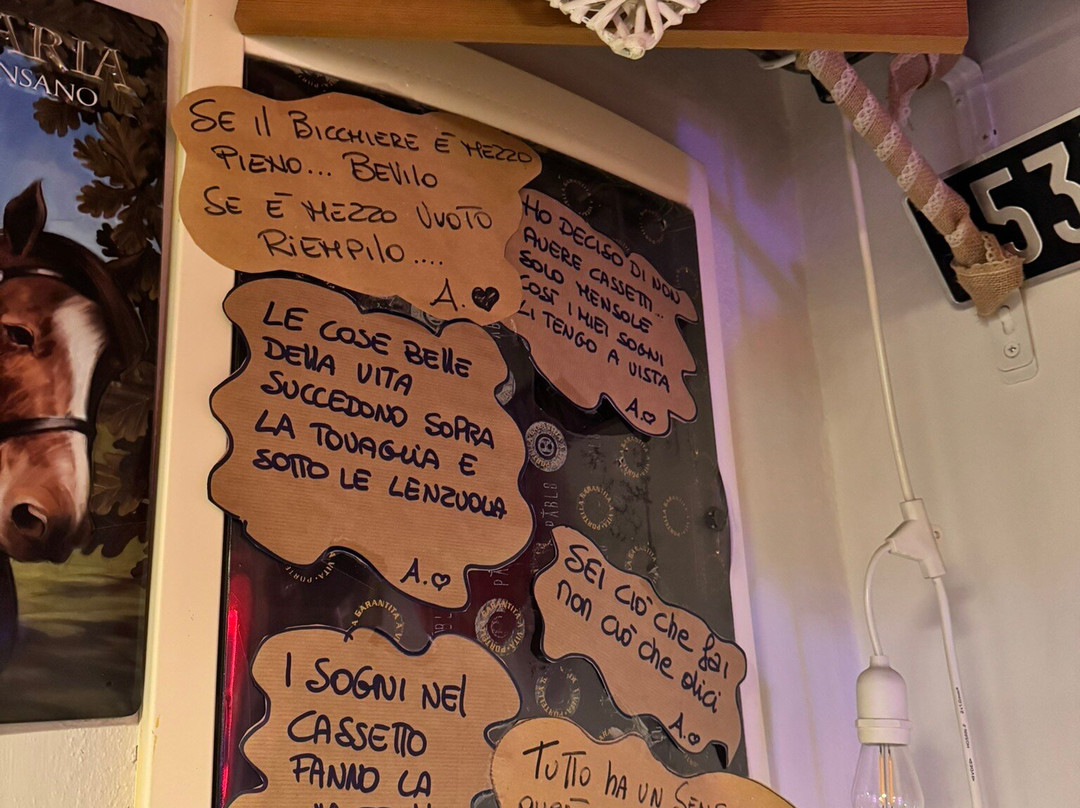 ARIA
NSANO
SE Il BICCHIERE È MEZZO
PIENO... BEVILO
SE È MEZZO VUOTO
RIEMPILO....
A.
HO DECISO DI NON
AVERE CASSETTI..
SOLO MENSOLE
COSÌ I MIEI SOGNI
LI TENGO A VISTA
A.
LE COSE BELLE
DELLA VITA
SUCCEDONO SOPRA
LA TOVAGLIA E
SOTTO LE LENZUOLA
A.
SEI CIÒ CHE fai
non ciò che dici
A.
I SOGNI NEl
CASSETTO
FANNO LA
TUTTO HA UN SENS
53
PABLO
GARANTITA A VITA